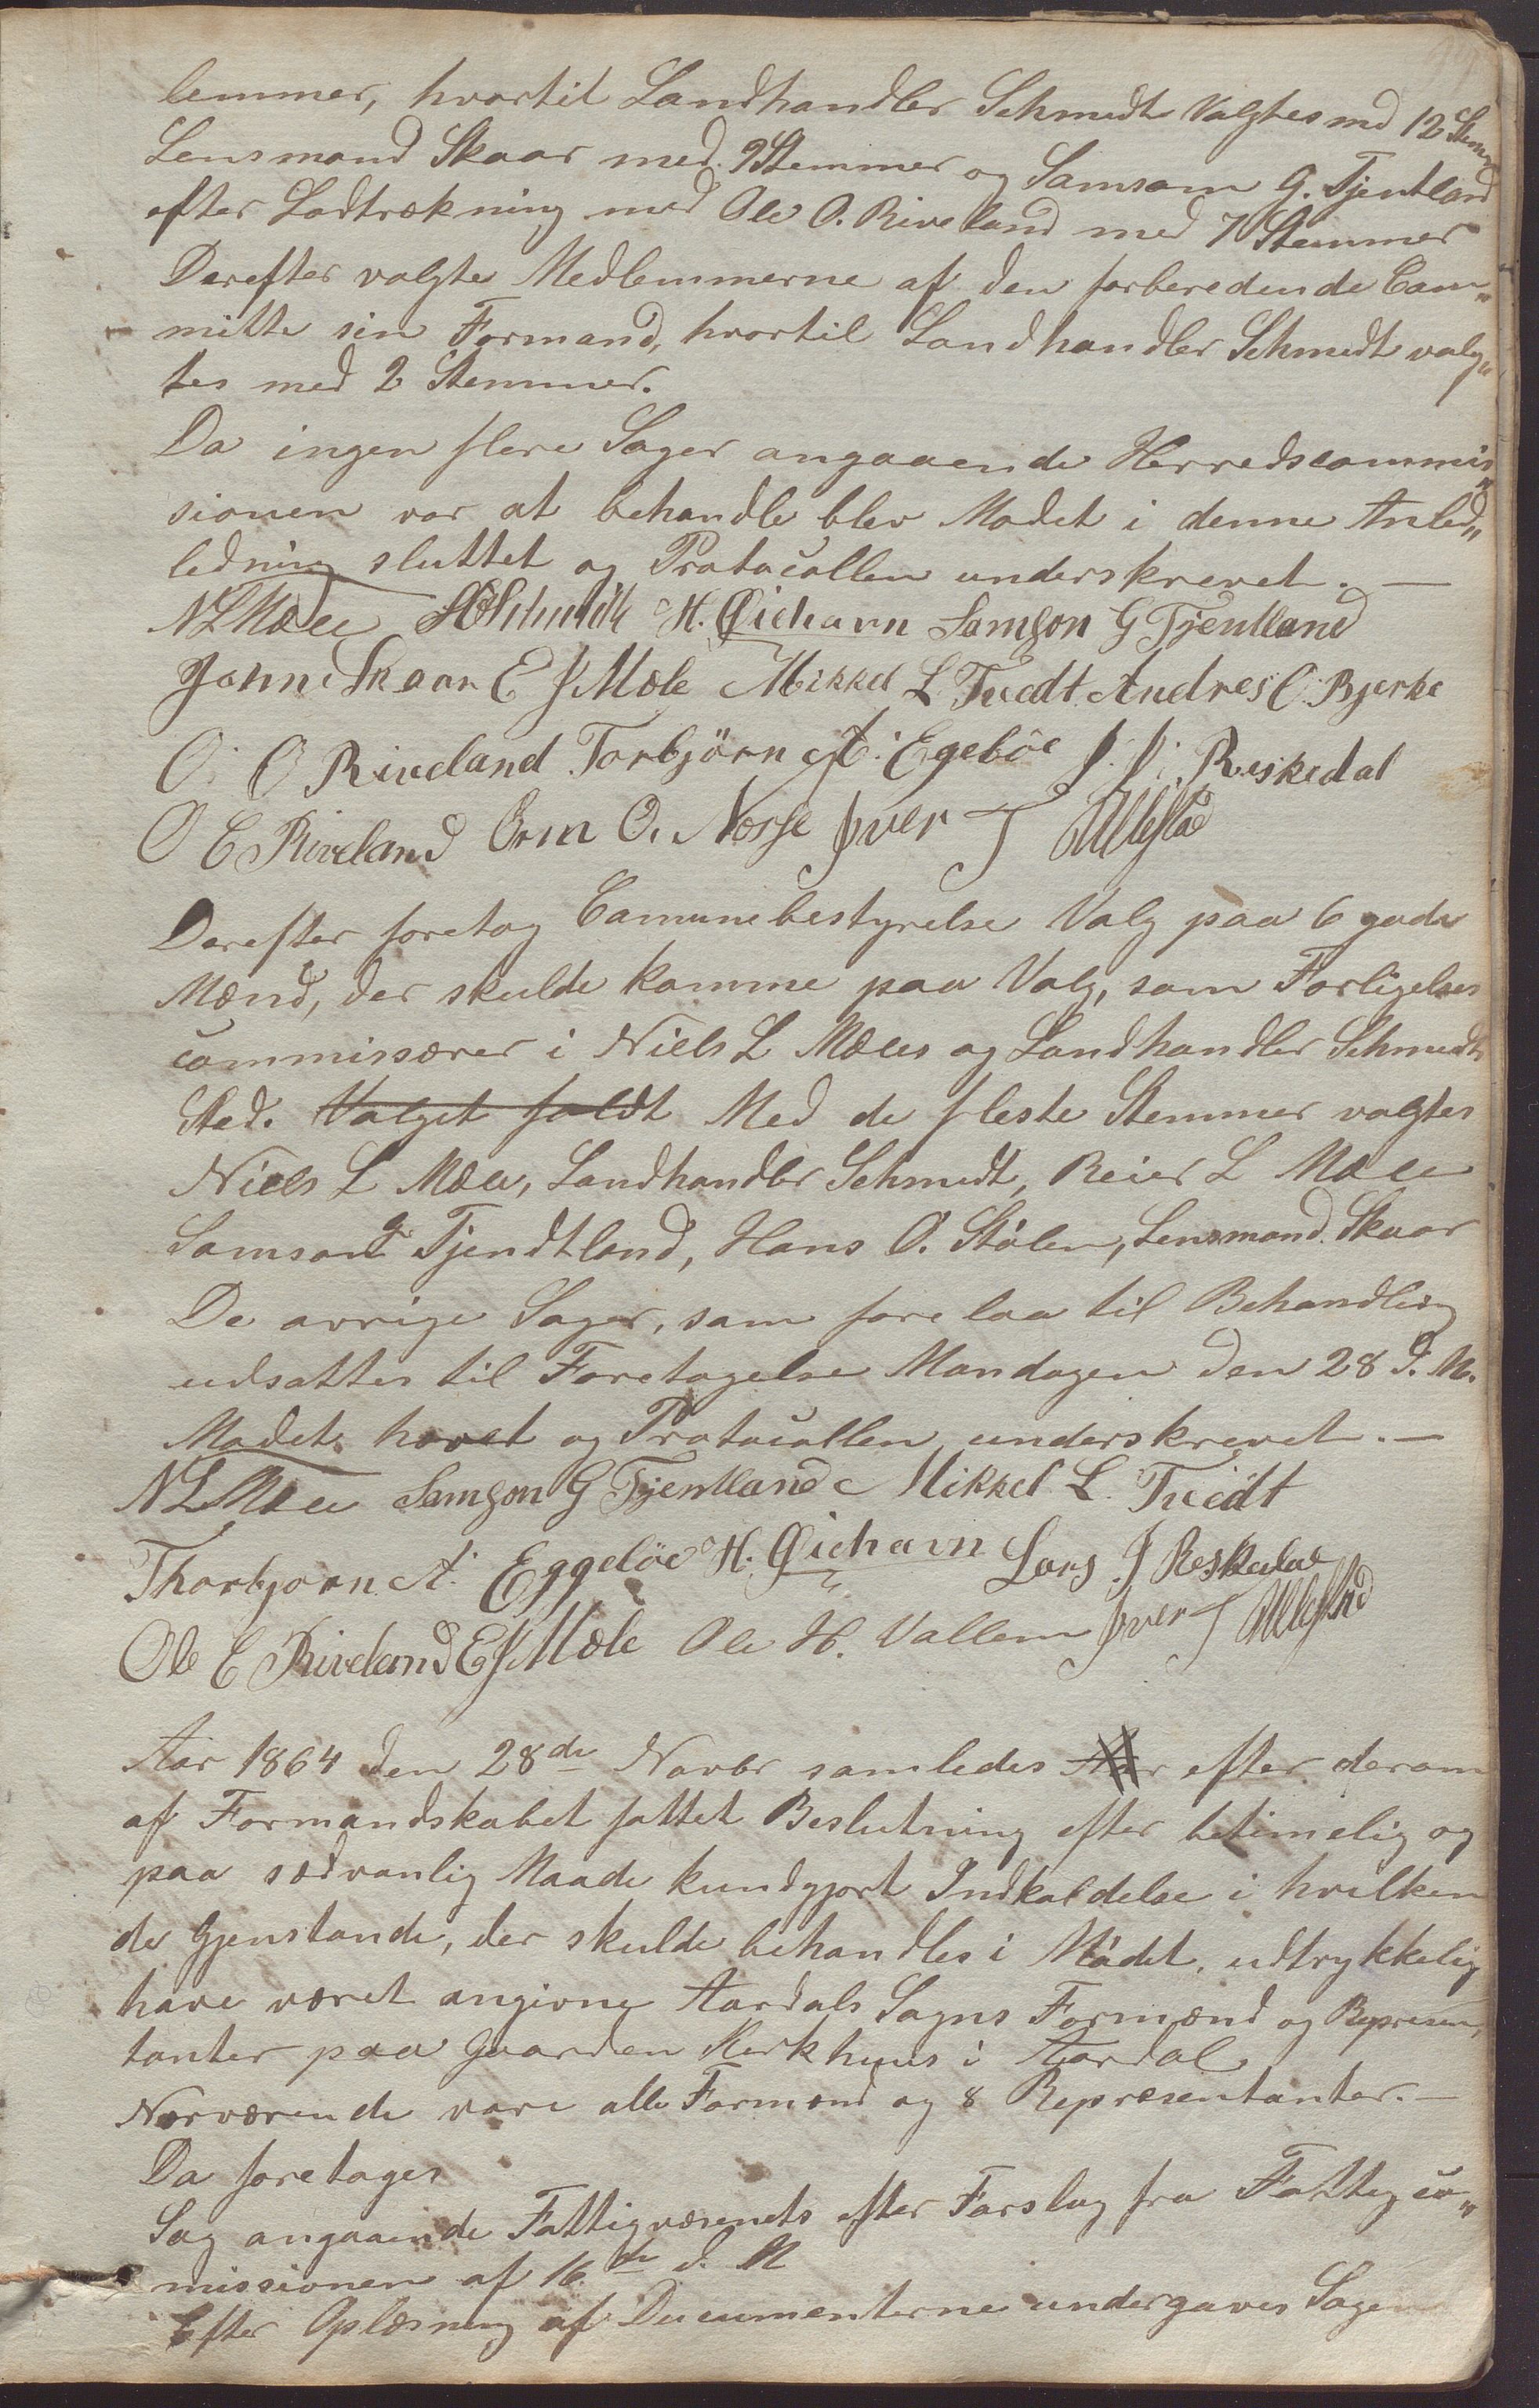 lemmer, hvortil Landhandler Schmidt Valgtes md 12 Stem
Lensmand Skaar med 9 Stemmer og Samson G. Tjentland
efter Lodtrækning med Ole O. Riveland med 7 Stemmer
Derefter valgte Medlemmerne af den forberedende Com„
mitte sin Formand, hvortil Landhandler Schmidt valg„
tes med 2 Stemmer.
Da ingen flere Sager angaaende Herredscommis„
sionen var at behandle blev Mødet i denne Anled„
ledning sluttet og Protocollen underskrevet. —
N L Mæle Schmidt H. Øiehavn Samson G Tjentland
Jonn Skaar E J Mæle Mikkel L. Tvedt Andres O. Bjerke
O. O Riveland Torbjörn A. Egeböe J. J. Reskedal
O E Riveland Orm O. Nesse Iver T Ullestad
Derefter foretog Comunebestyrelse Valg paa 6 gode
Mænd, der skulde komme paa Valg, som Forligelses
commissærer i Niels L Mæles og Landhandler Schmidts
Sted. Valget faldt Med de fleste Stemmer valgtes
Niels L Mæle, Landhandler Schmidt, Reier L Mæle
Samson G Tjendtland, Hans O. Stølen, Lensmand Skaar
De øvrige Sager, som forelaa til Behandling
udsattes til Foretagelse Mandagen den 28 d. M.
Mødet hævet og Protocollen underskrevet. —
N L Mæle Samson G Tjentland Mikkel L. Tvedt
Thorbjørn A. Eggeböe H. Øiehavn Lars J Reskedal
Ole E Riveland E J Mæle Ole H. Vallem Iver T Ullestad
Aar 1864 den 28de Novbr samledes efter derom
af Formandskabet fattet Beslutning efter betimelig og
paa sædvanlig Maade kundgjort Indkaldelse i hvilken
de Gjenstande, der skulde behandles i Mødet, udtrykkelig
have været angivne Aardals Sogns Formænd og Repræsen„
tanter paa Gaarden Kirkhuus i Aardal
Nærværende vare alle Formænd og 8 Repræsentanter. —
Da foretages
Sag angaaende Fattigvæsenets efter Forslag fra Fattigco„
missionen af 16de d. M
Efter Oplæsning af Documenterne undergaves Sagen